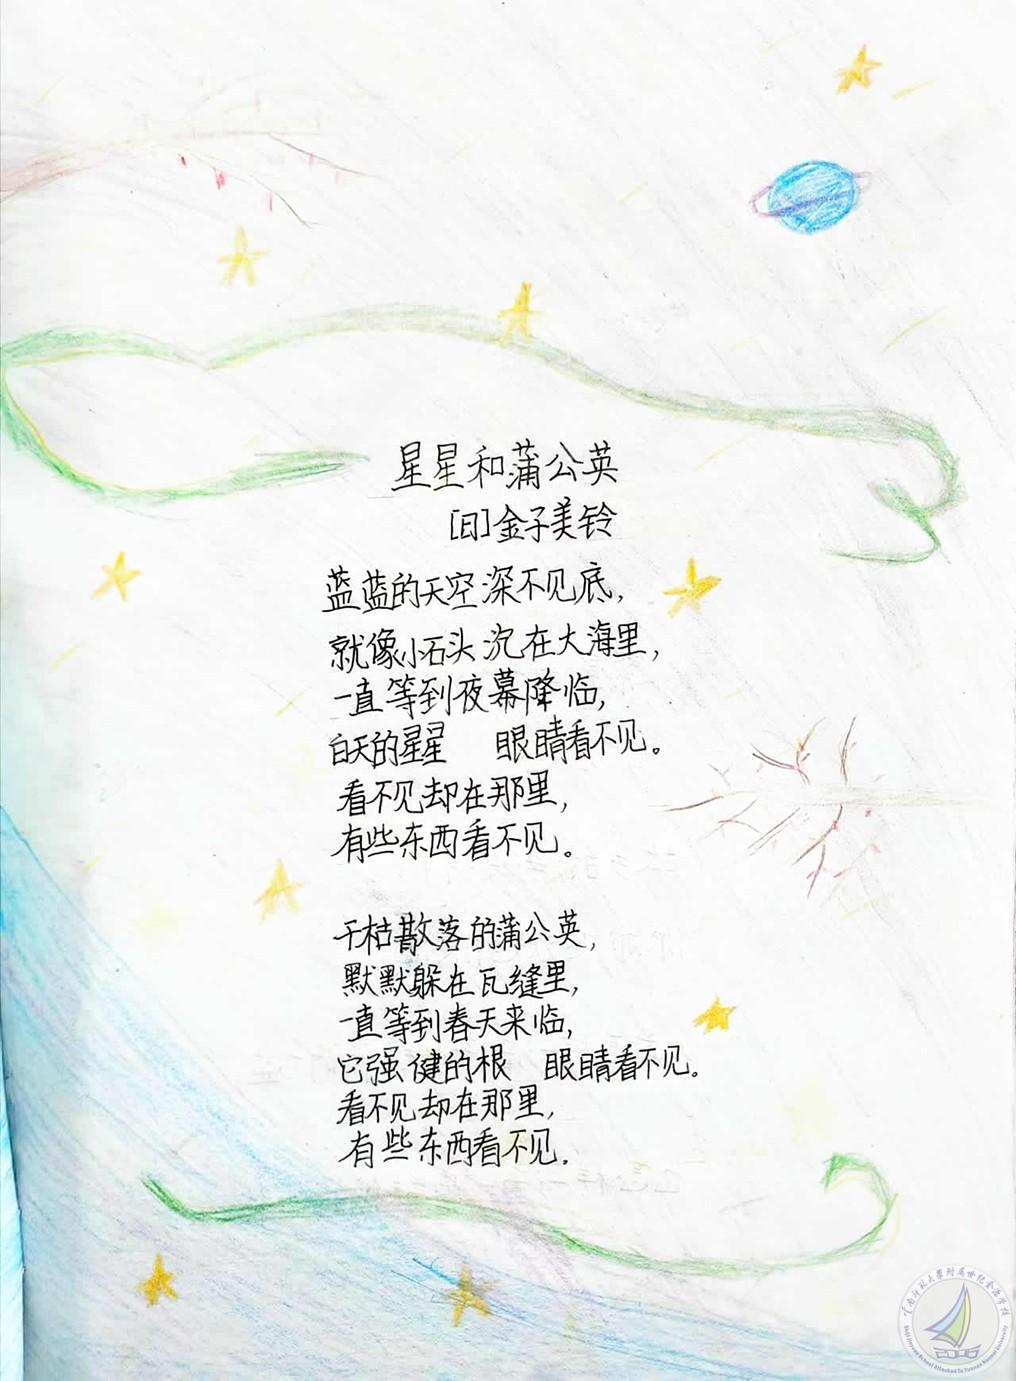 星星和蒲公英
[日]金子美铃
蓝蓝的天空深不见底，
就像小石头沉在大海里，
一直等到夜幕降临，
白天的星星 眼睛看不见。
看不见却在那里，
有些东西看不见。
干枯散落的蒲公英，
默默躲在瓦缝里，
一直等到春天来临，
它强健的根 眼睛看不见。
看不见却在那里，
有些东西看不见.
云南师范大学附属世纪金源学校